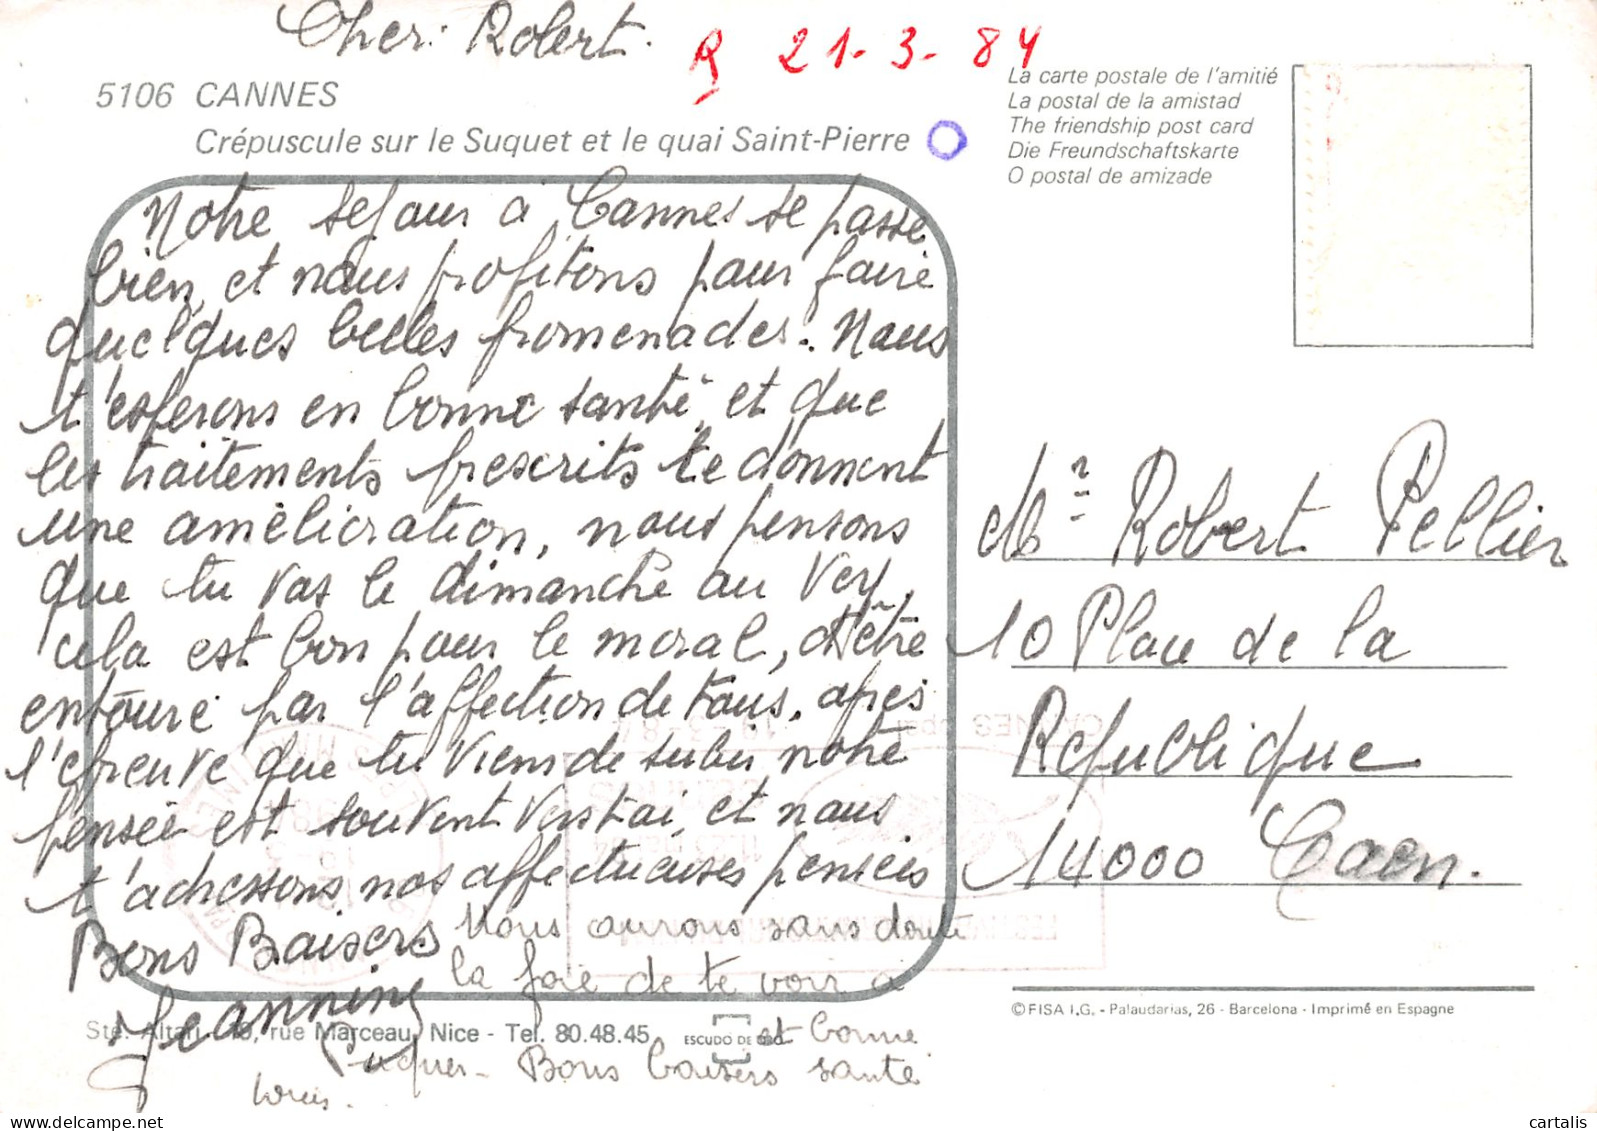 Cher: Robert.
R 21-3-84
5106 CANNES
Crépuscule sur le Suquet et le quai Saint-Pierre
La carte postale de l'amitié
La postal de la amistad
The friendship post card
Die Freundschaftskarte
O postal de amizade
Notre sejour à Cannes se passe
bien, et nous profitons pour faire
quelques belles promenades. Nous
t'esperons en bonne santé, et que
les traitements prescrits te donnent
une amélioration, nous pensons
que tu vas le dimanche au Vey,
cela est bon pour le moral, d'être
entouré par l'affection de tous, après
l'épreuve que tu viens de subir notre
pensée est souvent vers toi, et nous
t'adressons nos affectueuses pensées
Bons Baisers
Jeannine
Nous aurons sans doute
la joie de te voir à
Pâques - Bons baisers et bonne
santé
Louis.
Mr Robert Pellier
10 Place de la
Republique
14000 Caen.
© FISA I.G. - Palaudarias, 26 - Barcelona - Imprimé en Espagne
Sté. Altari rue Marceau, Nice - Tel. 80.48.45
ESCUDO DE
CANNES 19-3-84
cartalis